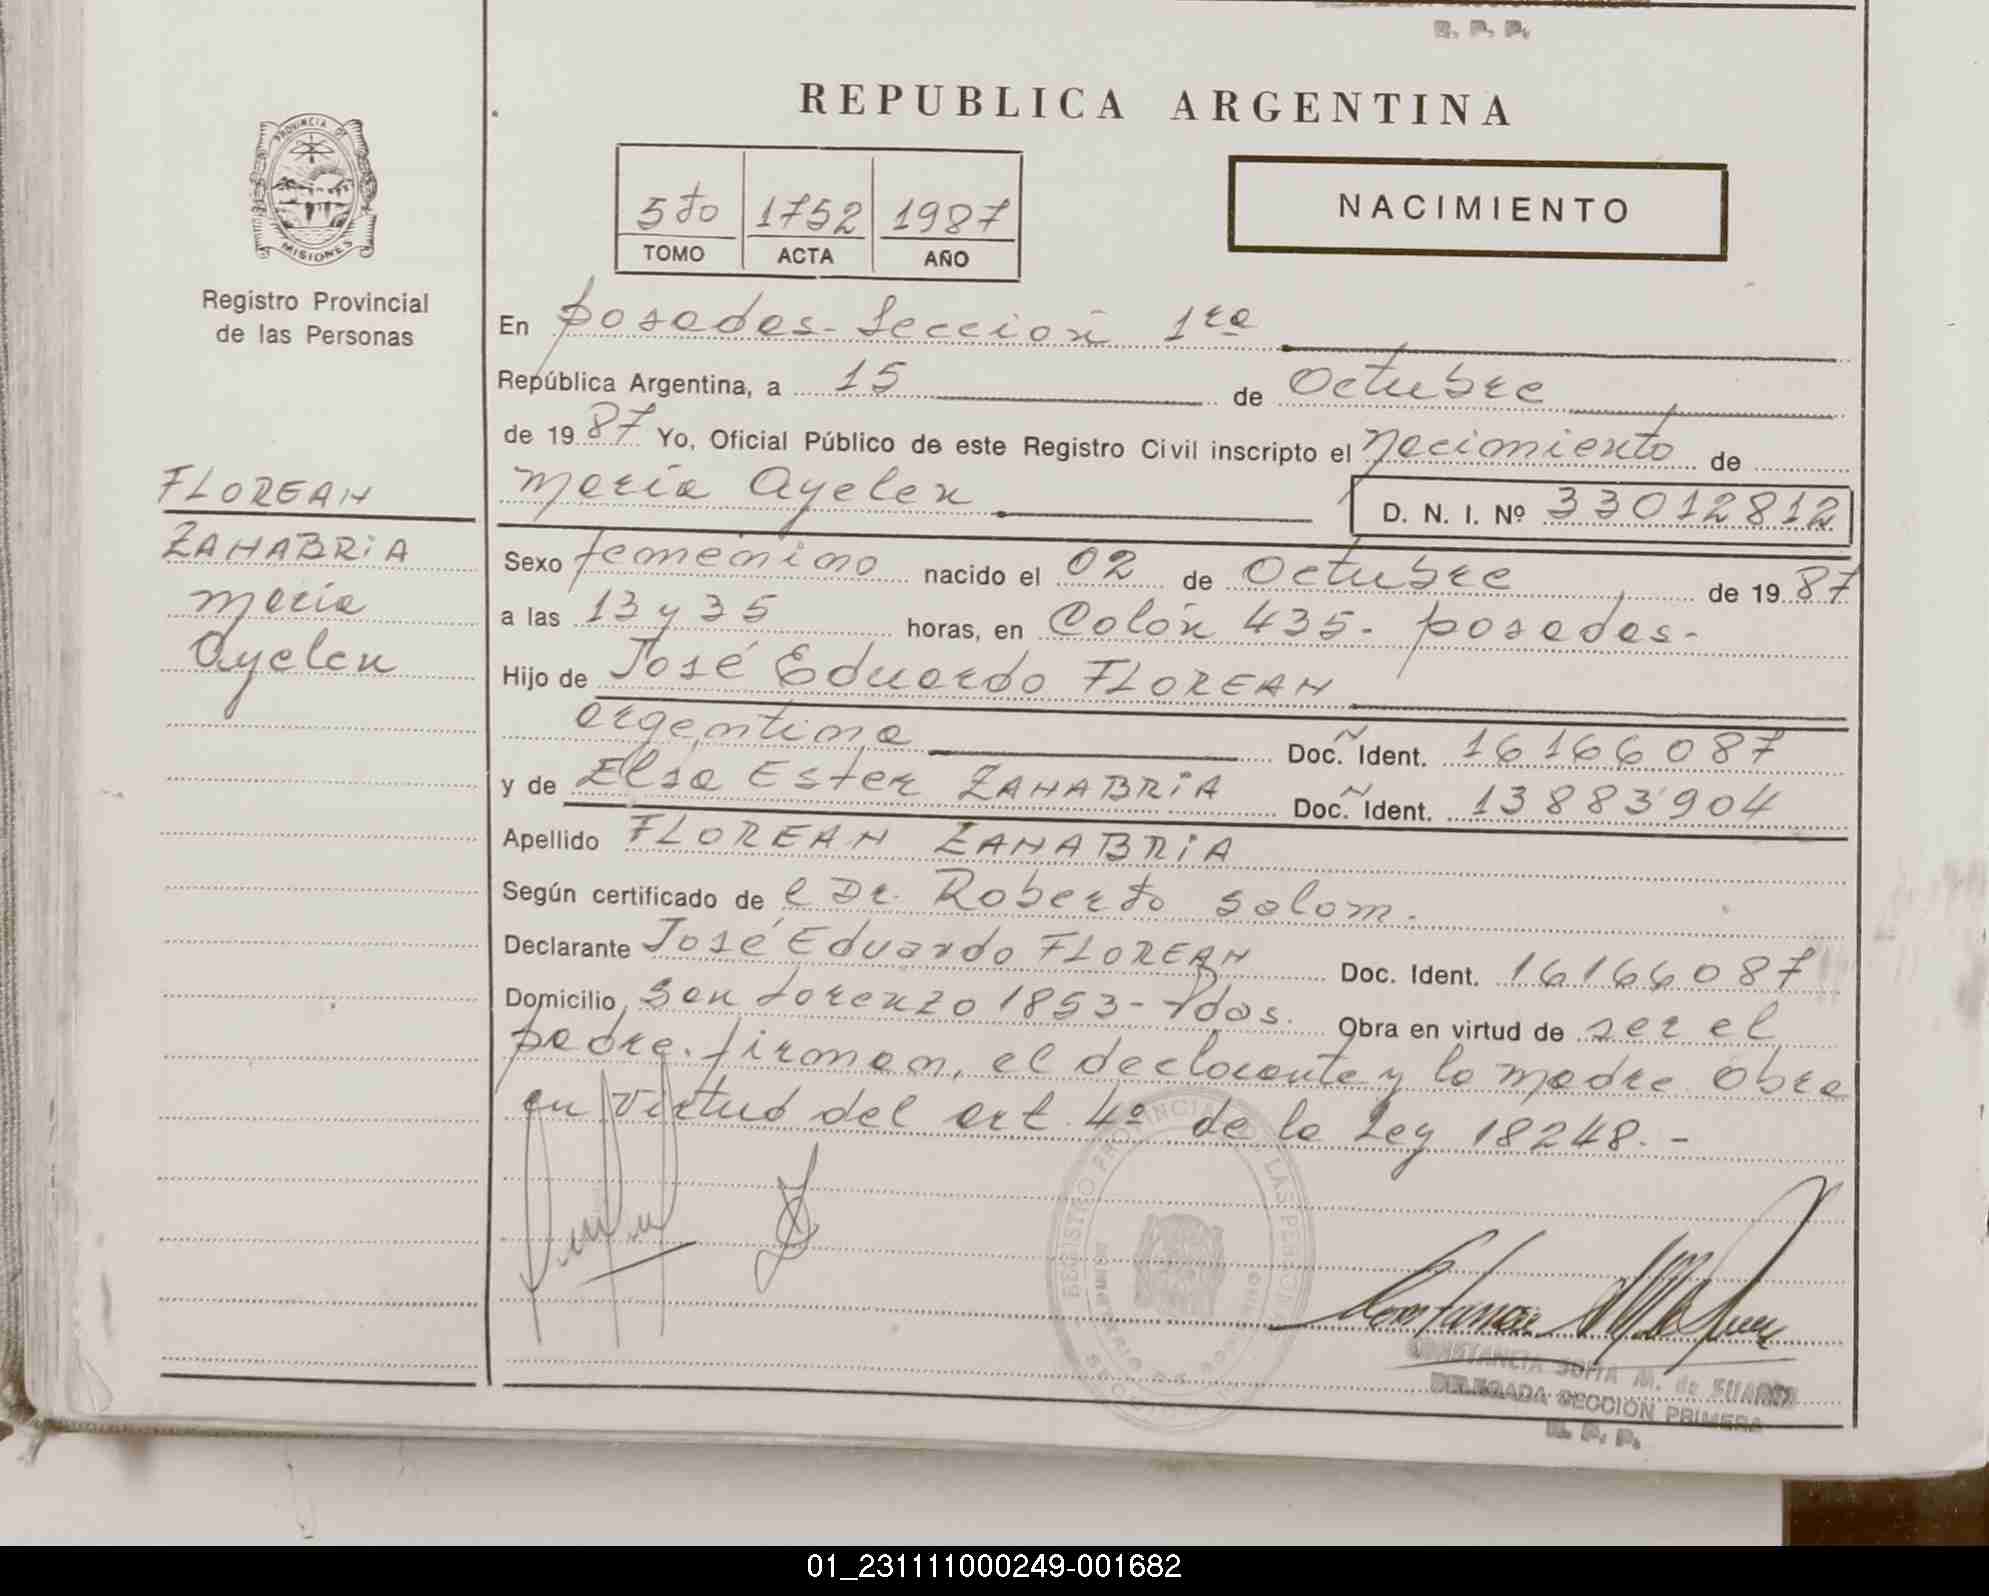 R. P. P.
REPUBLICA ARGENTINA
PROVINCIA DE
MISIONES
Registro Provincial
de las Personas
5to 1752 1987
TOMO ACTA AÑO
NACIMIENTO
En Posadas - Sección 1ra
República Argentina, a 15 de Octubre
de 1987 Yo, Oficial Público de este Registro Civil inscripto el Nacimiento de
María Ayelen D. N. I. Nº 33012812
FLOREAN
ZANABRIA
María
Ayelen
Sexo femenino nacido el 02 de Octubre de 1987
a las 13 y 35 horas, en Colón 435 - Posadas -
Hijo de José Eduardo FLOREAN
argentina Doc. Ident. 16166087
y de Elsa Ester ZANABRIA Doc. Ident. 13883904
Apellido FLOREAN ZANABRIA
Según certificado de l Dr. Roberto Salom.
Declarante José Eduardo FLOREAN Doc. Ident. 16166087
Domicilio San Lorenzo 1853 - Pdas. Obra en virtud de ser el
padre. firman, el declarante y la madre. Obra
en virtud del art. 4º de la Ley 18248. -
REGISTRO PROVINCIAL DE LAS PERSONAS
CONSTANCIA SOFIA M. de SUAREZ
DELEGADA SECCIÓN PRIMERA
R. P. P.
01_231111000249-001682